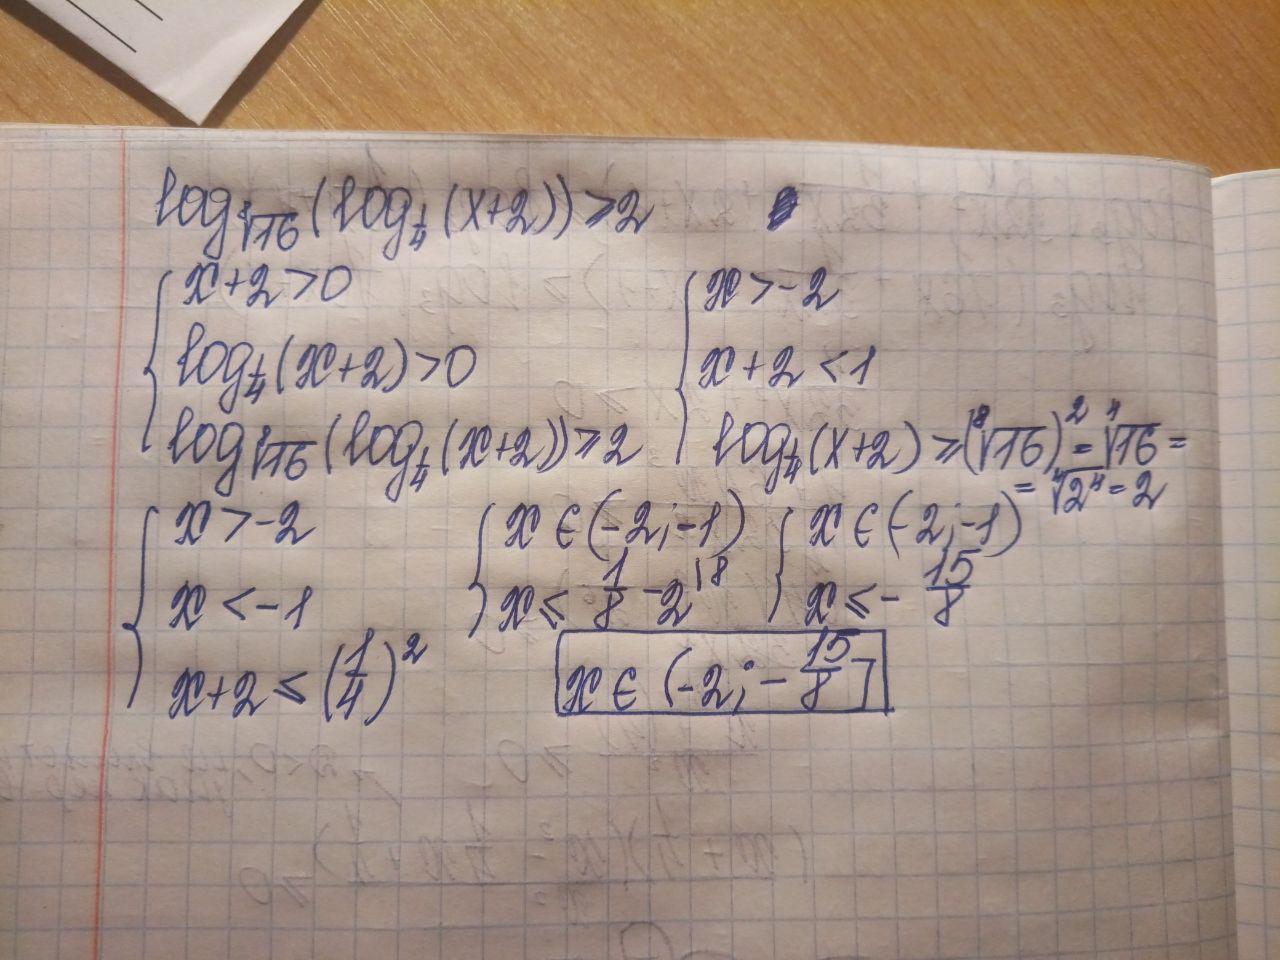 log_{\sqrt[8]{16}}(log_{\frac{1}{4}}(x+2)) ⩾ 2
{ x+2>0
{ x>-2
log_{\frac{1}{4}}(x+2)>0
x+2<1
log_{\sqrt[8]{16}}(log_{\frac{1}{4}}(x+2)) ⩾ 2
log_{\frac{1}{4}}(x+2) ⩾ (\sqrt[8]{16})^2 = \sqrt[4]{16} =
= \sqrt[4]{2^4} = 2
{ x>-2
x<-1
x+2 ⩽ (\frac{1}{4})^2
{ x ∈ (-2; -1)
x ⩽ \frac{1}{8} - 2^{18}
{ x ∈ (-2; -1)
x ⩽ - \frac{15}{8}
x ∈ (-2; -\frac{15}{8}]